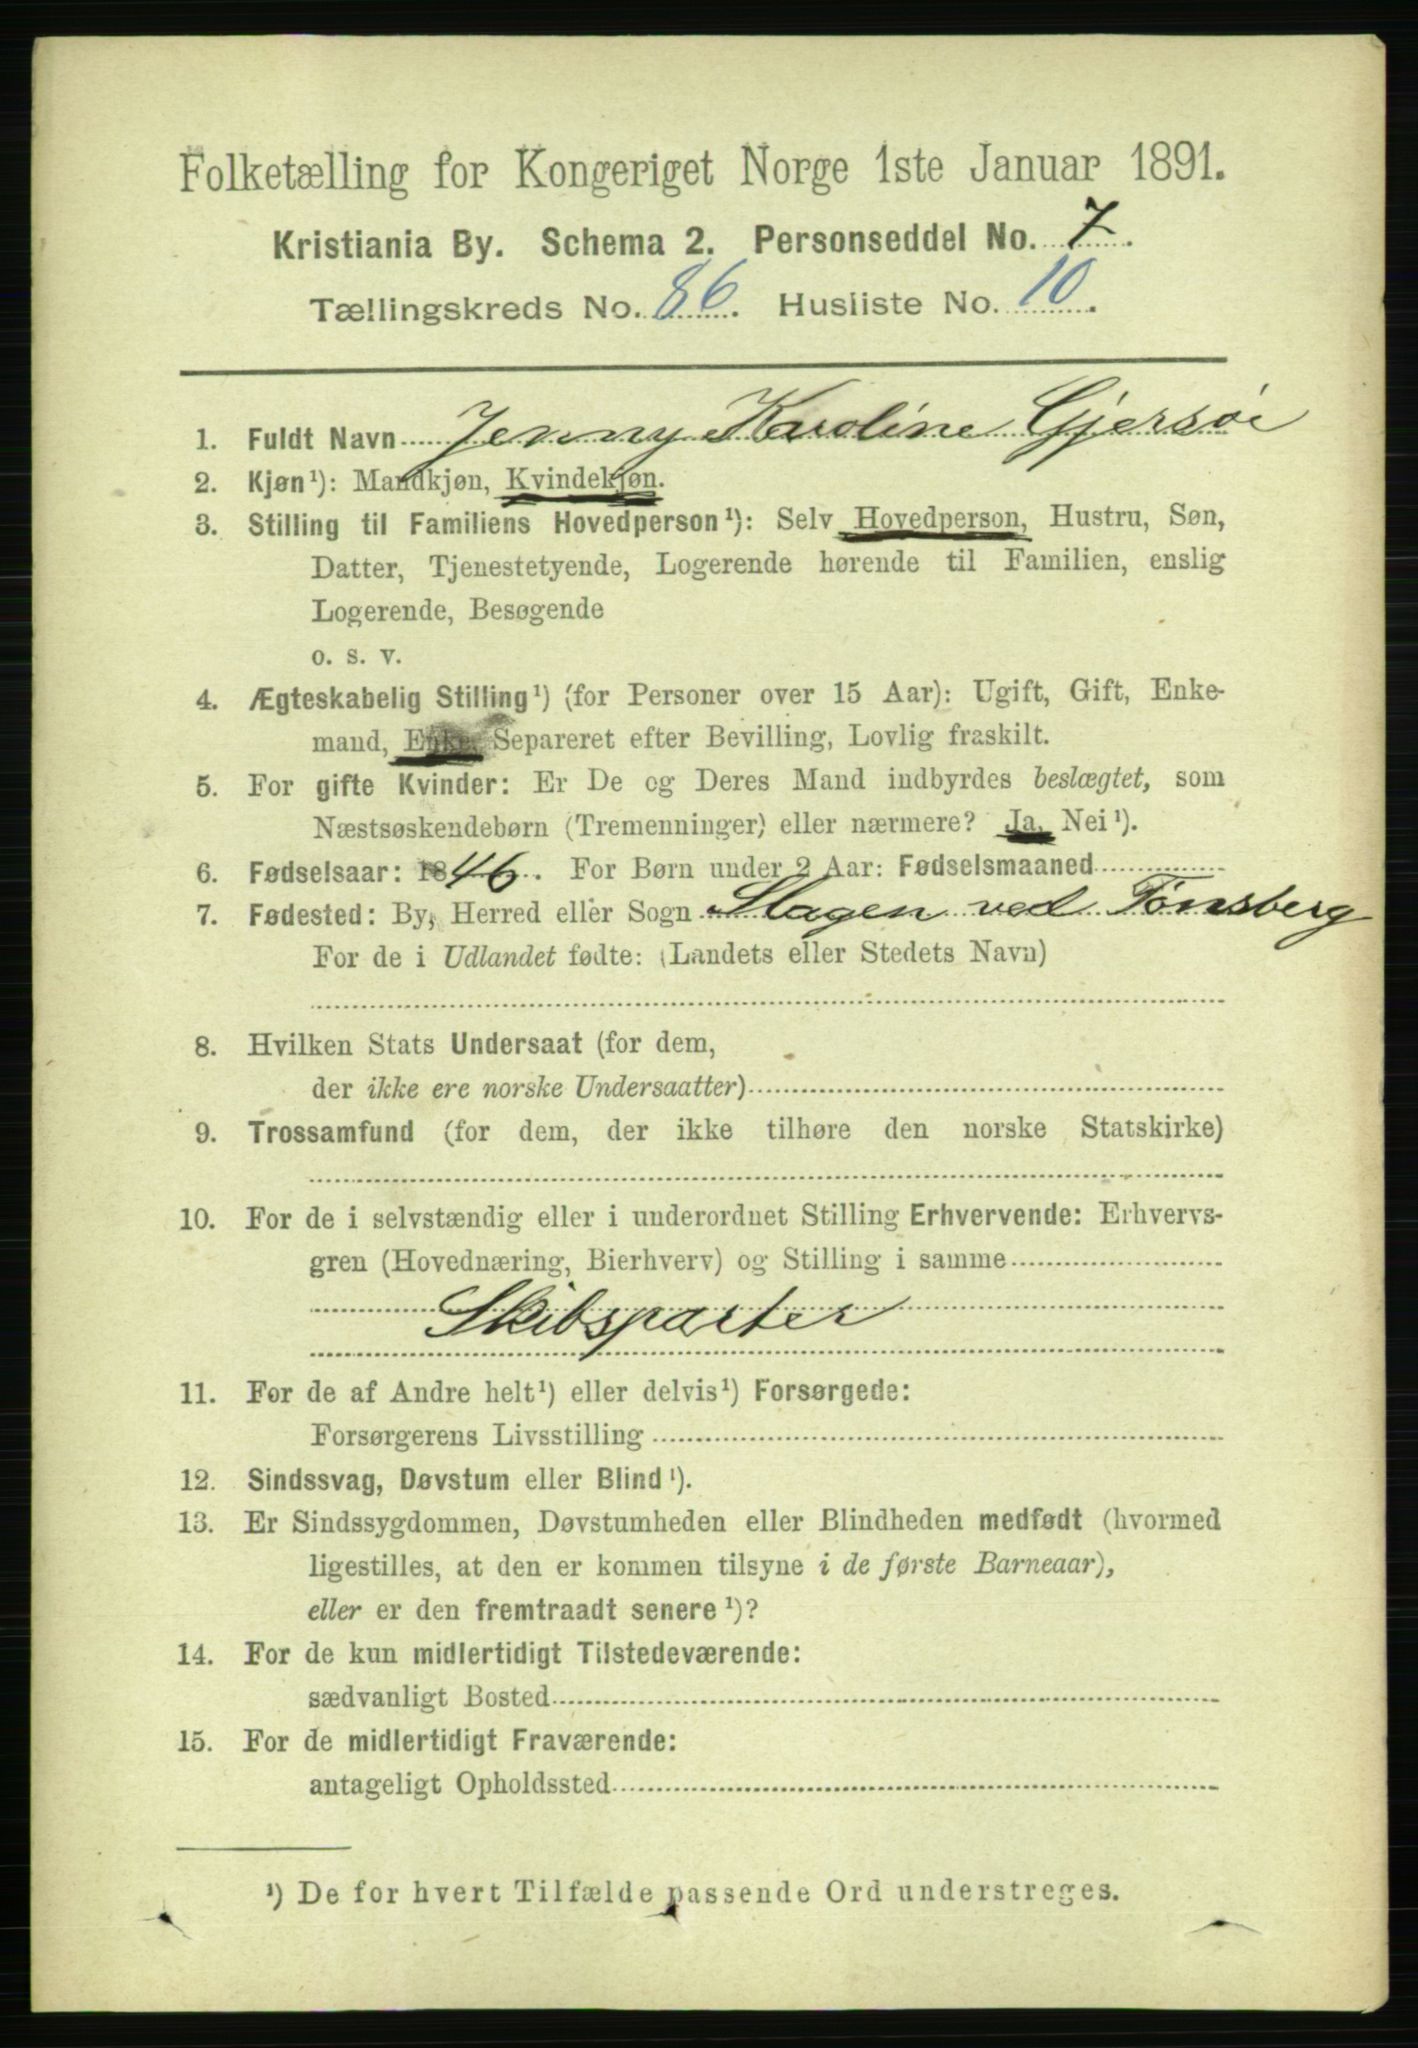 Folketælling for Kongeriget Norge 1ste Januar 1891.
Kristiania By. Schema 2. Personseddel No. 7.
Tællingskreds No. 86. Husliste No. 10.
1. Fuldt Navn Jenny Karoline Gjersøe
2. Kjøn¹): Mandkjøn, Kvindekjøn.
3. Stilling til Familiens Hovedperson¹): Selv Hovedperson, Hustru, Søn,
Datter, Tjenestetyende, Logerende hørende til Familien, enslig
Logerende, Besøgende
o. s. v.
4. Ægteskabelig Stilling¹) (for Personer over 15 Aar): Ugift, Gift, Enke-
mand, Enke, Separeret efter Bevilling, Lovlig fraskilt.
5. For gifte Kvinder: Er De og Deres Mand indbyrdes beslægtet, som
Næstsøskendebørn (Tremenninger) eller nærmere? Ja, Nei¹).
6. Fødselsaar: 1846. For Børn under 2 Aar: Fødselsmaaned
7. Fødested: By, Herred eller Sogn Slagen ved Tønsberg
For de i Udlandet fødte: (Landets eller Stedets Navn)
8. Hvilken Stats Undersaat (for dem,
der ikke ere norske Undersaatter)
9. Trossamfund (for dem, der ikke tilhøre den norske Statskirke)
10. For de i selvstændig eller i underordnet Stilling Erhvervende: Erhvervs-
gren (Hovednæring, Bierhverv) og Stilling i samme
Skibsparter
11. For de af Andre helt¹) eller delvis¹) Forsørgede:
Forsørgerens Livsstilling
12. Sindssvag, Døvstum eller Blind¹).
13. Er Sindssygdommen, Døvstumheden eller Blindheden medfødt (hvormed
ligestilles, at den er kommen tilsyne i de første Barneaar),
eller er den fremtraadt senere¹)?
14. For de kun midlertidigt Tilstedeværende:
sædvanligt Bosted
15. For de midlertidigt Fraværende:
antageligt Opholdssted
¹) De for hvert Tilfælde passende Ord understreges.